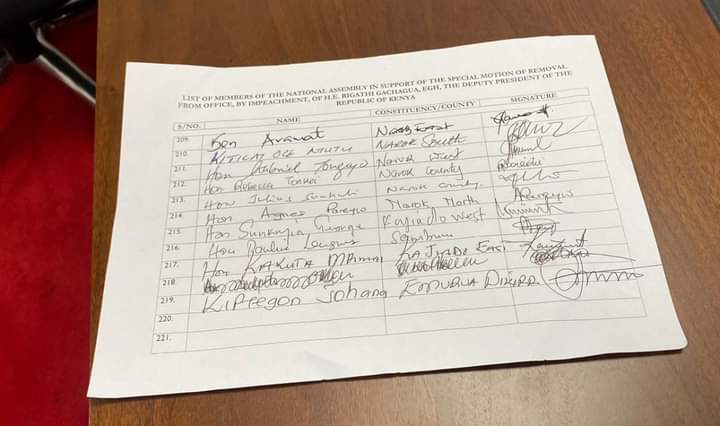 LIST OF MEMBERS OF THE NATIONAL ASSEMBLY IN SUPPORT OF THE SPECIAL MOTION OF REMOVAL
FROM OFFICE, BY IMPEACHMENT, OF H.E. RIGATHI GACHAGUA, EGH, THE DEPUTY PRESIDENT OF THE
REPUBLIC OF KENYA
S/NO. NAME CONSTITUENCY/COUNTY SIGNATURE
209. Ken Aramat Narok East
210. KITILAI OLE NTUTU NAROK South
211. Hon Gabriel Tongoyo Narok West
212. Hon Rebecca Tonkei Narok County
213. Hon Julius Narok County.
214. Hon Agnes Pareyio Narok North
215. Hon Sunkuyia George Kajiado West
216. Hon Samburu
217. Hon KAKUTA MAIMAI KAJIADO East
218.
219. Kipeegon Johana EMURUA DIKIRR
220.
221.